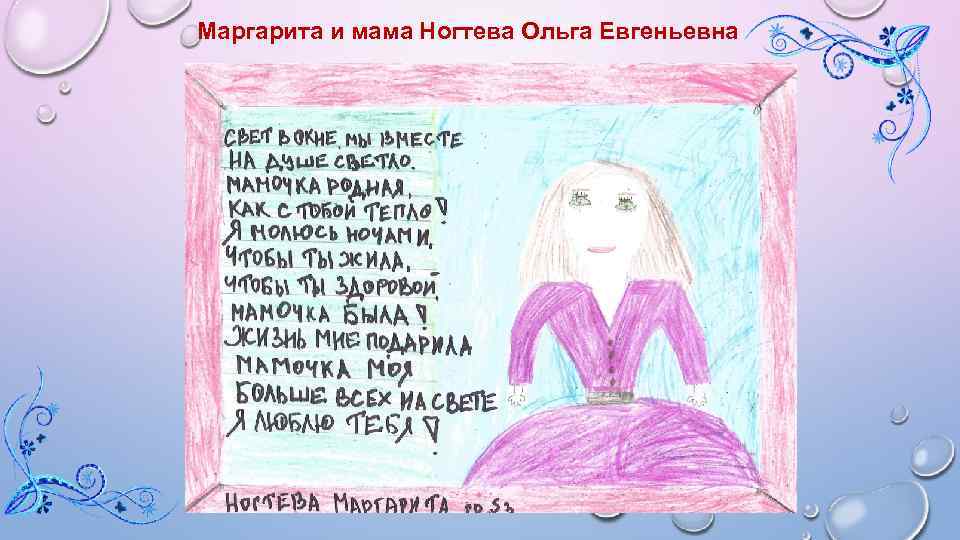 Маргарита и мама Ногтева Ольга Евгеньевна
СВЕТ В ОКНЕ, МЫ ВМЕСТЕ
НА ДУШЕ СВЕТЛО.
МАМОЧКА РОДНАЯ,
КАК С ТОБОЙ ТЕПЛО!
Я МОЛЮСЬ НОЧАМИ,
ЧТОБЫ ТЫ ЖИЛА,
ЧТОБЫ ТЫ ЗДОРОВОЙ
МАМОЧКА БЫЛА!
ЖИЗНЬ МНЕ ПОДАРИЛА
МАМОЧКА МОЯ
БОЛЬШЕ ВСЕХ НА СВЕТЕ
Я ЛЮБЛЮ ТЕБЯ!
НОГТЕВА МАРГАРИТА